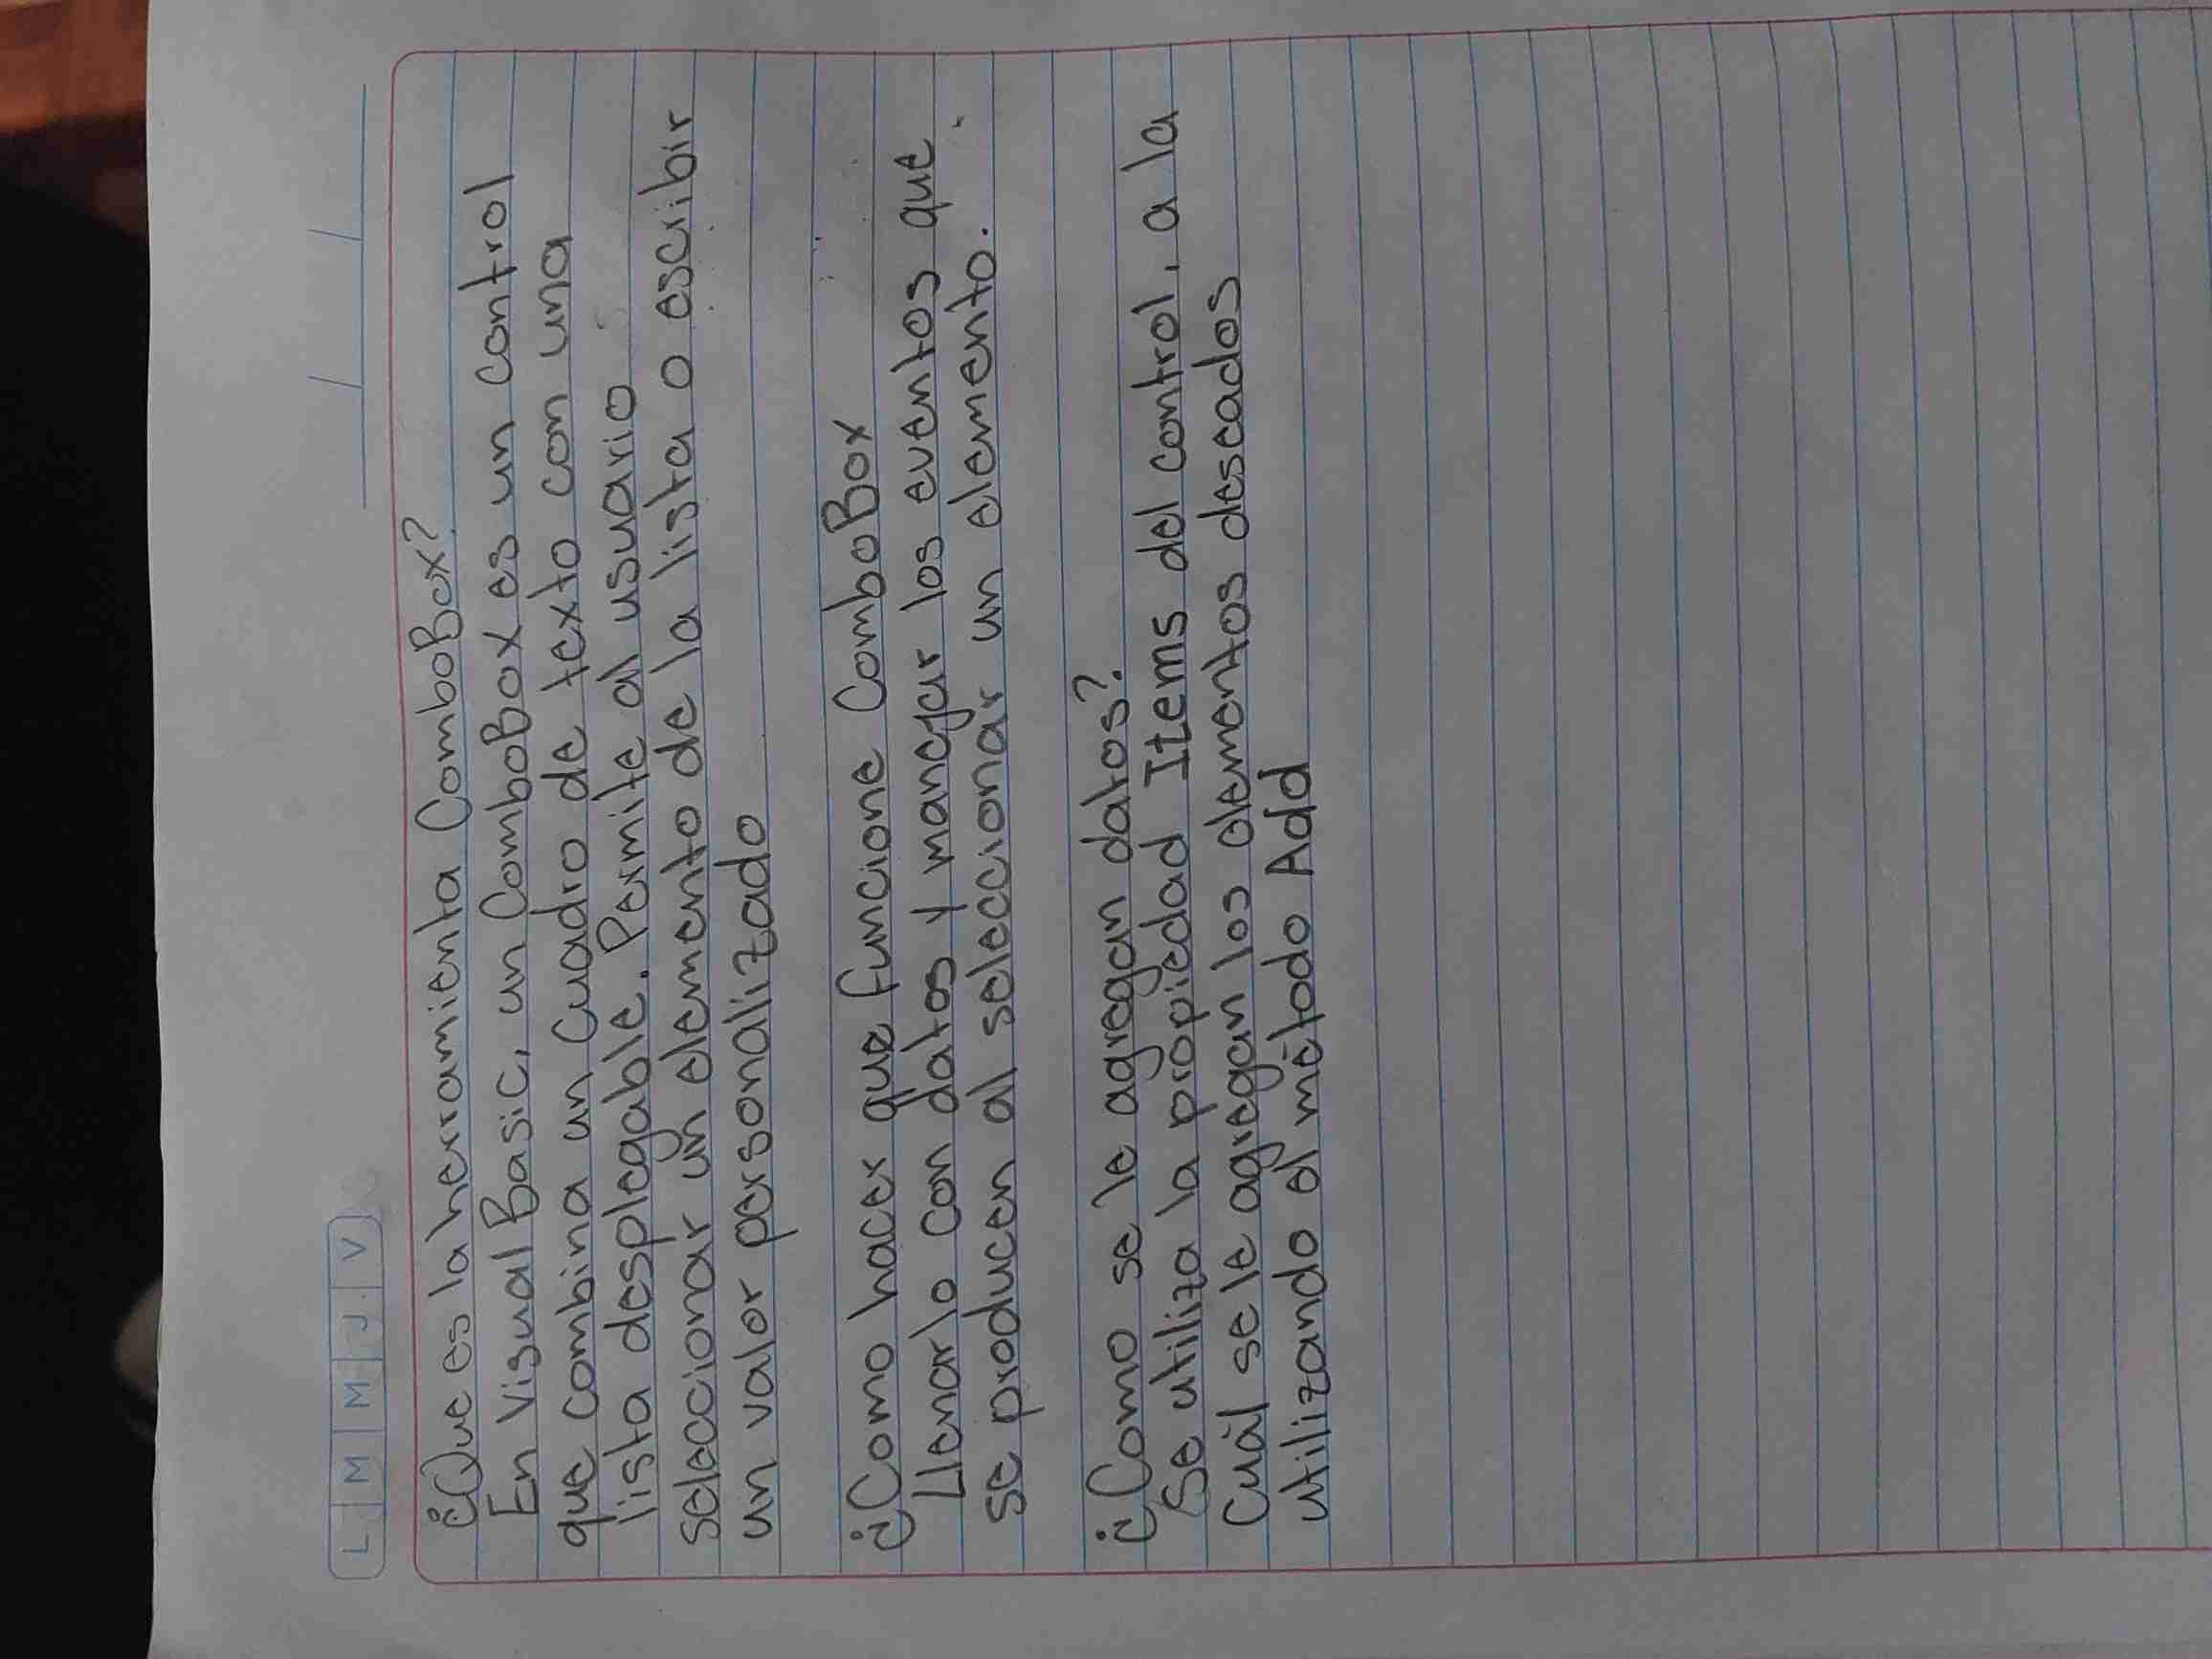 L M M J V
¿Que es la herramienta ComboBox?
En Visual Basic, un ComboBox es un control
que combina un cuadro de texto con una
lista desplegable. Permite al usuario
seleccionar un elemento de la lista o escribir
un valor personalizado
¿Como hacer que funcione ComboBox
Llenarlo con datos y manejar los eventos que
se producen al seleccionar un elemento.
¿Como se le agregan datos?
Se utiliza la propiedad Items del control, a la
cuál se le agregan los elementos deseados
utilizando el método Add